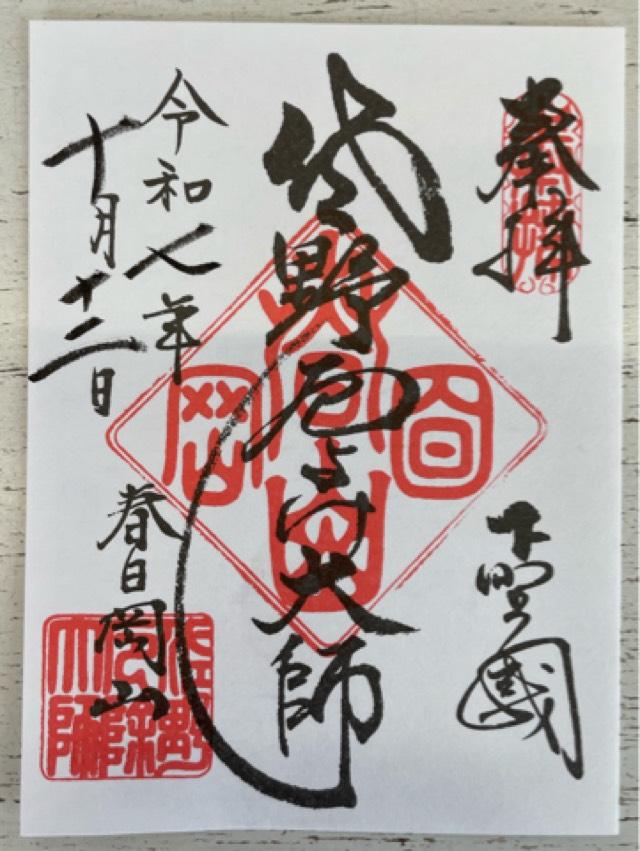 奉拝
下野國
佐野厄よけ大師
令和七年
十月十二日
春日岡山